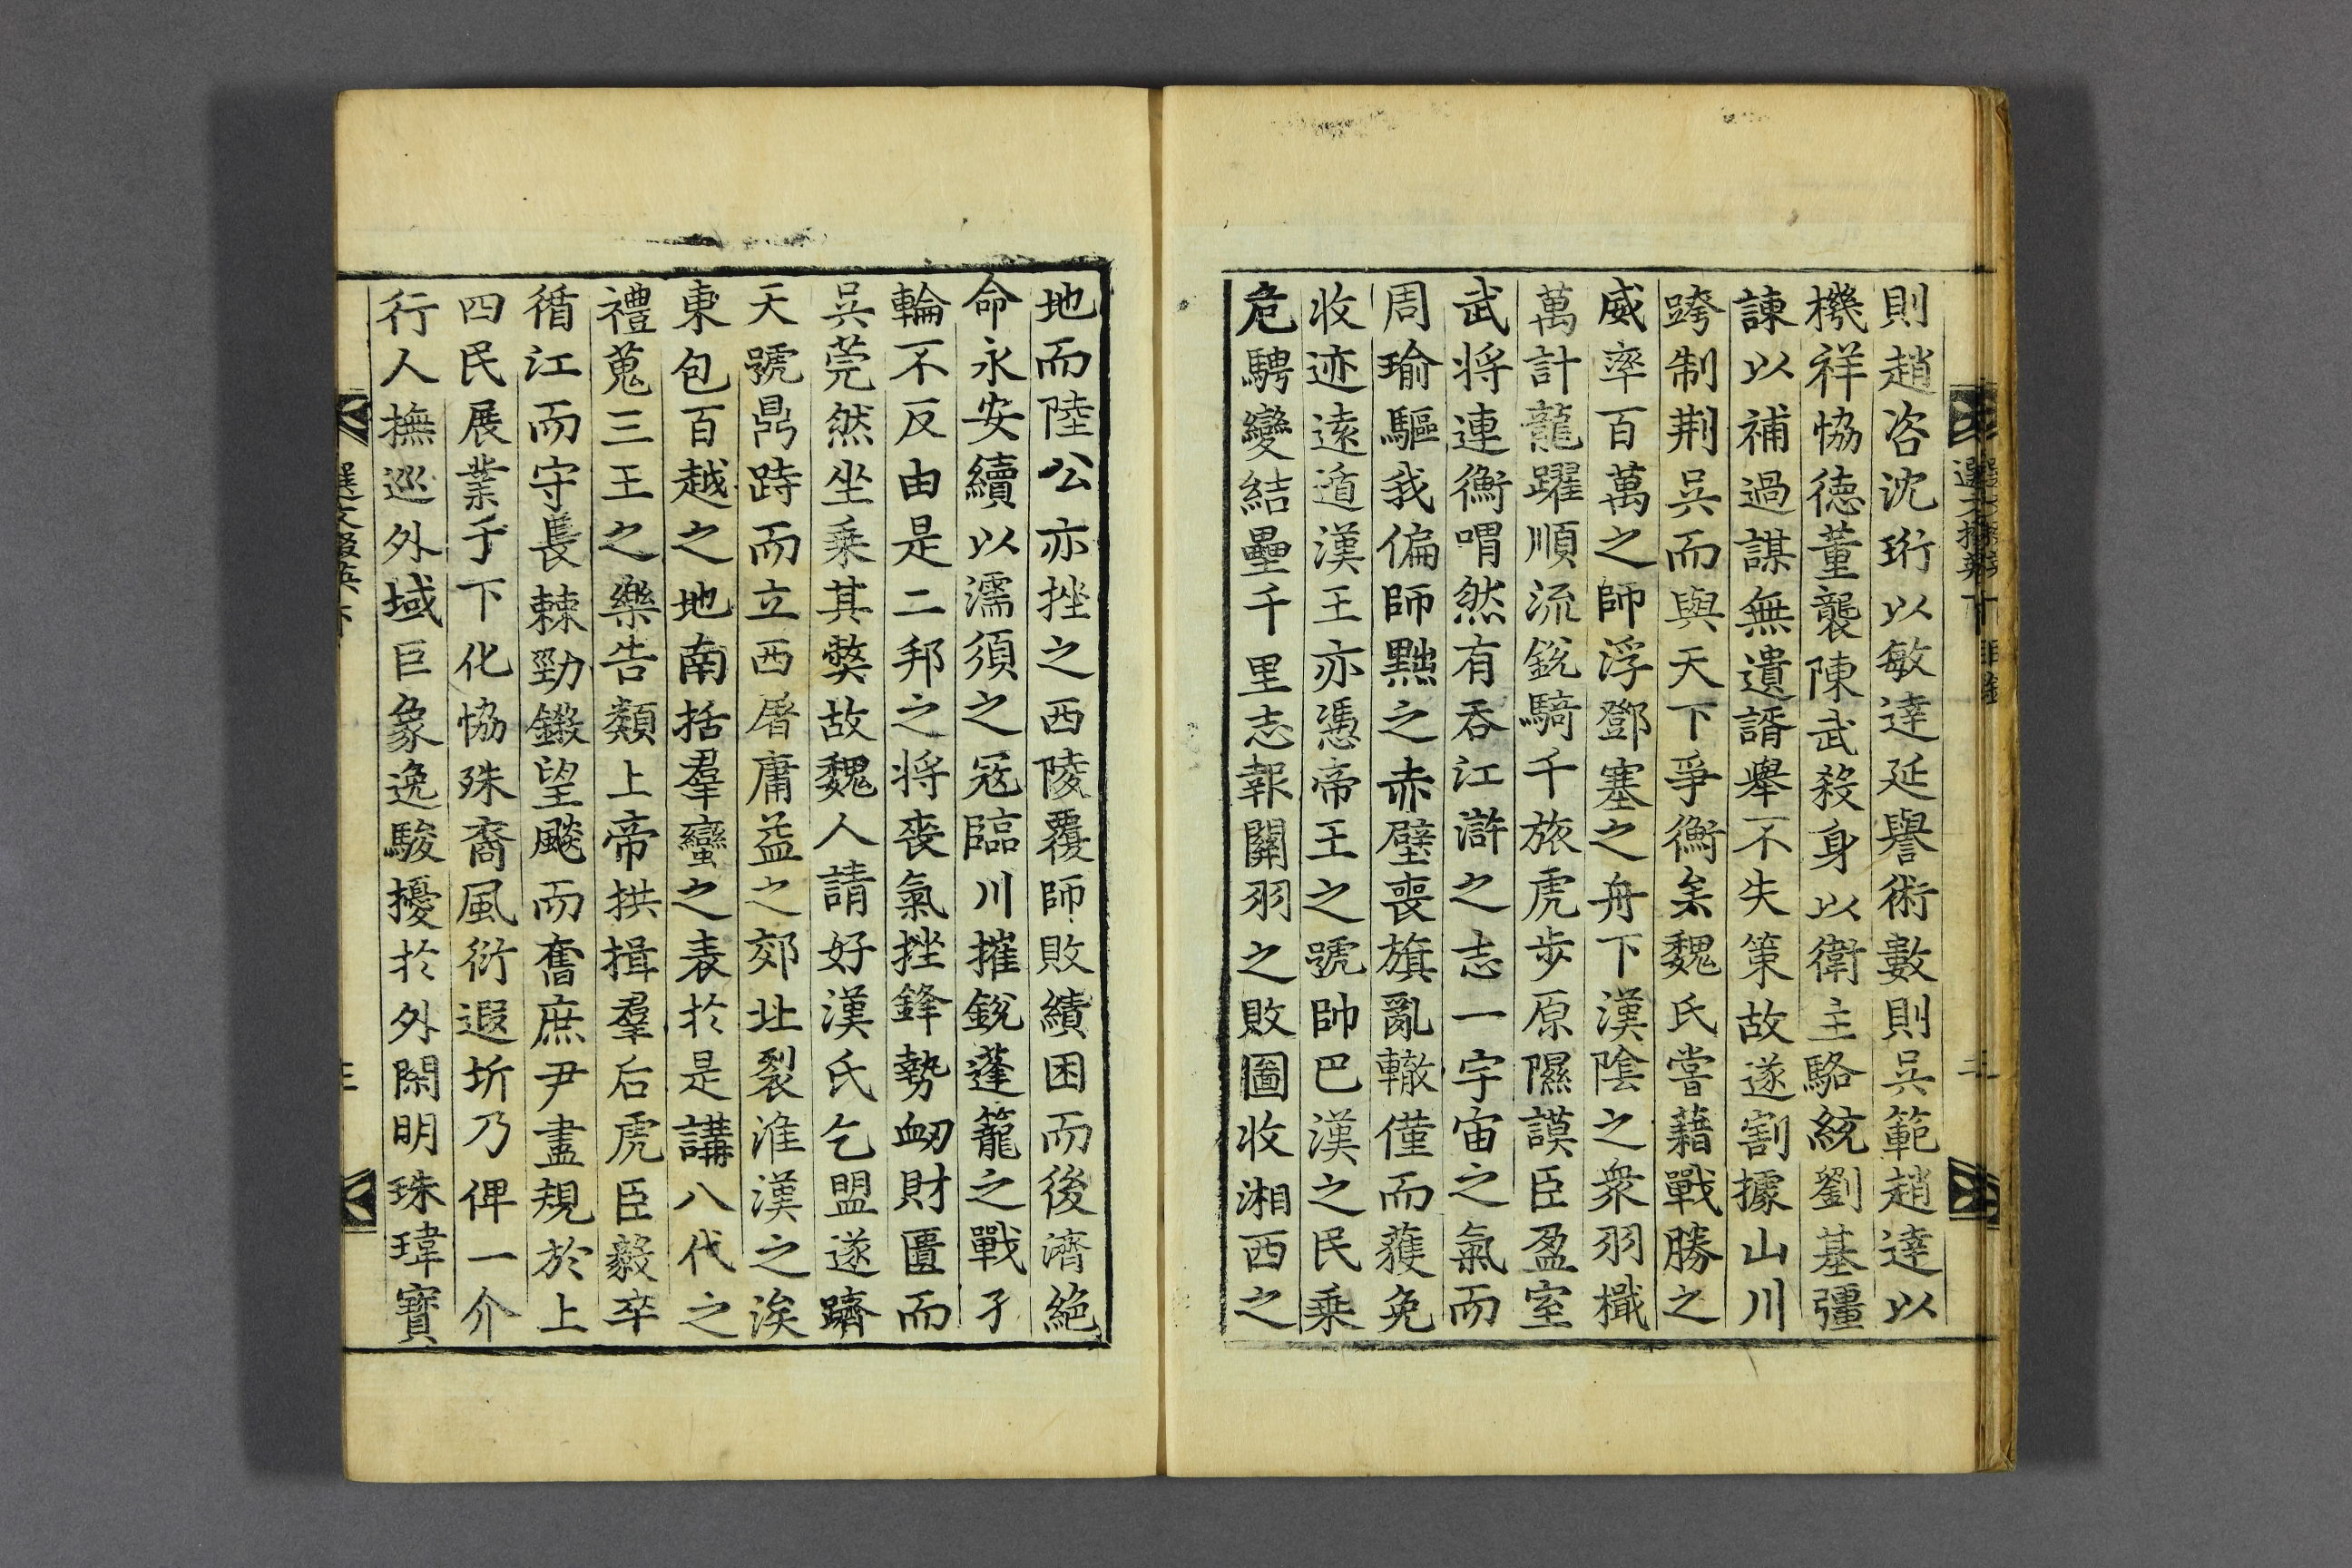 則趙咨沈珩以敏達延譽術數則吳範趙達以
機祥恊德董襲陳武殺身以衛主駱統劉基彊
諫以補過謀無遺諝舉不失策故遂割據山川
跨制荆吳而與天下爭衡矣魏氏嘗藉戰勝之
威率百萬之師浮鄧塞之舟下漢陰之衆羽檝
萬計龍躍順流銳騎千旅虎步原隰謨臣盈室
武将連衡喟然有吞江滸之志一宇宙之氣而
周瑜驅我偏師黜之赤壁喪旗亂轍僅而獲免
收迹遠遁漢王亦憑帝王之號帥巴漢之民乗
危騁變結壘千里志報關羽之敗圖收湘西之
地而陸公亦挫之西陵覆師敗績困而後濟絕
命永安續以濡須之寇臨川摧銳蓬籠之戰孑
輪不反由是二邦之将喪氣挫鋒勢衂財匱而
吳莞然坐乗其獘故魏人請好漢氏乞盟遂躋
天號鼎跱而立西屠庸益之郊北裂淮漢之涘
東包百越之地南括羣蠻之表於是講八代之
禮蒐三王之樂告類上帝拱揖羣后虎臣毅卒
循江而守長棘勁鎩望飈而奮庶尹盡規於上
四民展業于下化恊殊裔風衍遐圻乃俾一介
行人撫巡外域巨象逸駿擾於外閑明珠瑋寶